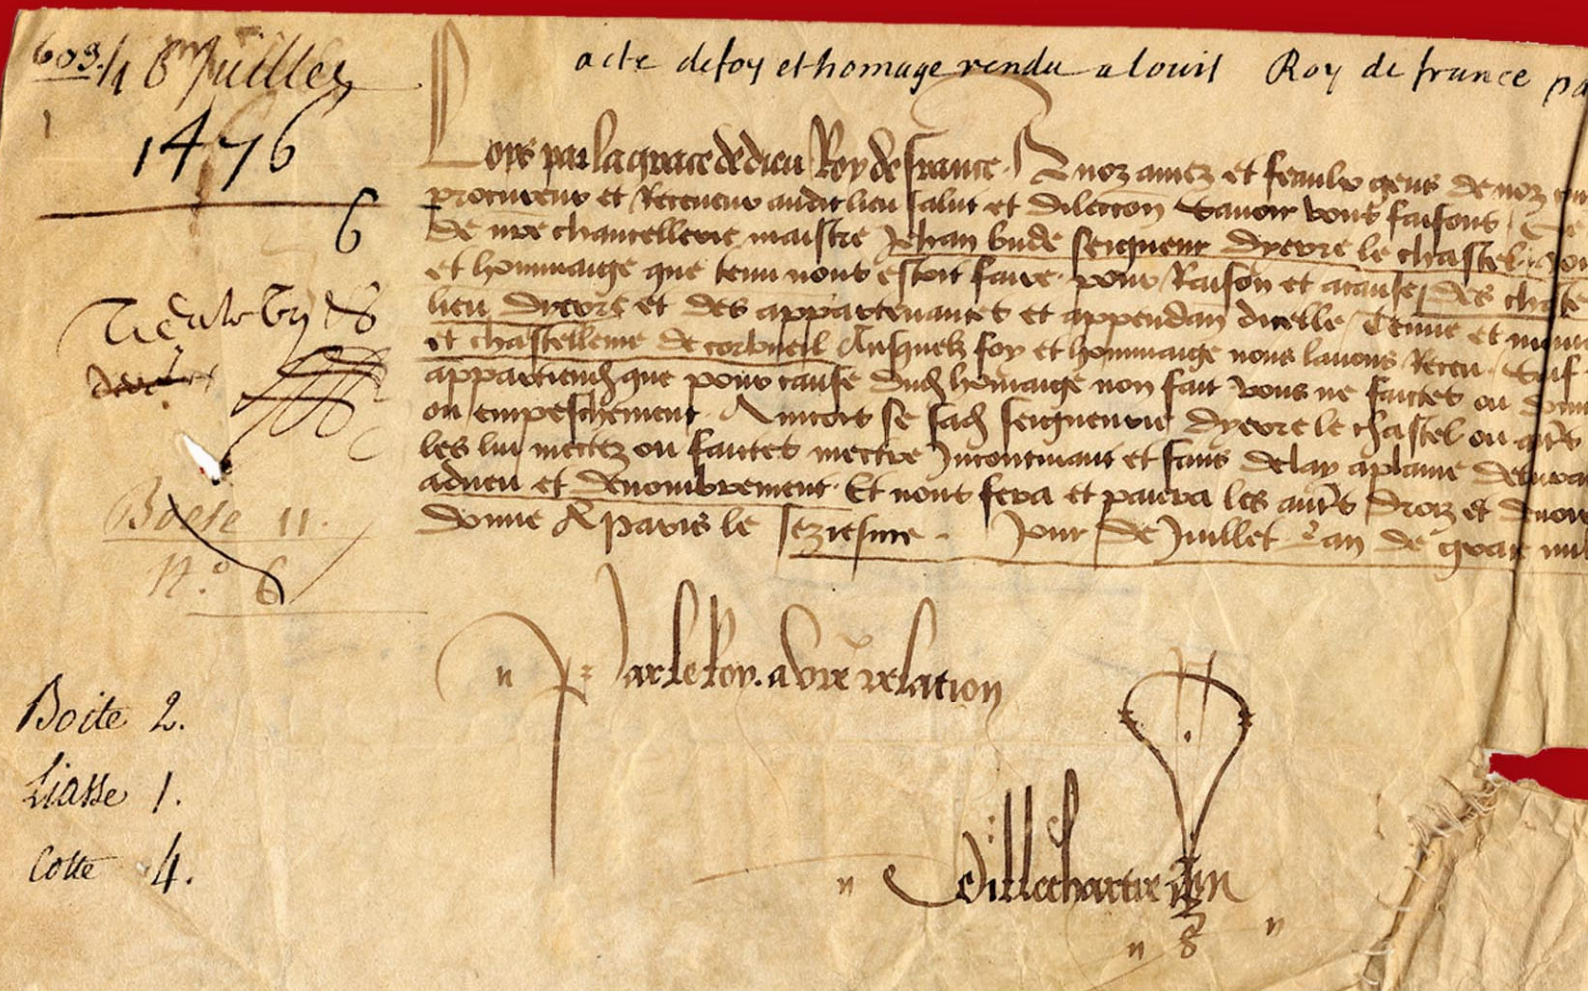 603.
16 Juillet
1476
6
acte defoy et homage rendu a louis Roy de france pa
Loys par la grace de dieu Roy de france. A noz amez et feaulx gens de noz
procureur et Receveur audit lieu salut et dilection Savoir vous faisons
de nre chancellerie maistre Jehan bude seigneur dyevre le chastel
et hommaige que tenu nous estoit faire. pour Raison et acause des chaste
lieu dyevre et des appartenances et appendan dicelle Tenue et mouv
et chastellenie de corbueil Ausquelz foy et hommaige nous lavons Receu. Sauf
appartiendh que pour cause dudh hommaige non fait vous ne faictes ou donn
ou empeschement. Aincois se sadh seigneurie dyevre le chastel ou
les lui mectez ou faictes mectre Incontinant et sans delay aplaine delivra
adveu et denombrement. Et nous fera et paiera les autrs droiz et devoir
donne A paris le seziesme jour de Juillet Lan de grace mil
Par le Roy. a vre relation
Villechartre
Boete 11.
N.º 6
Boite 2.
Liasse 1.
Cotte 4.